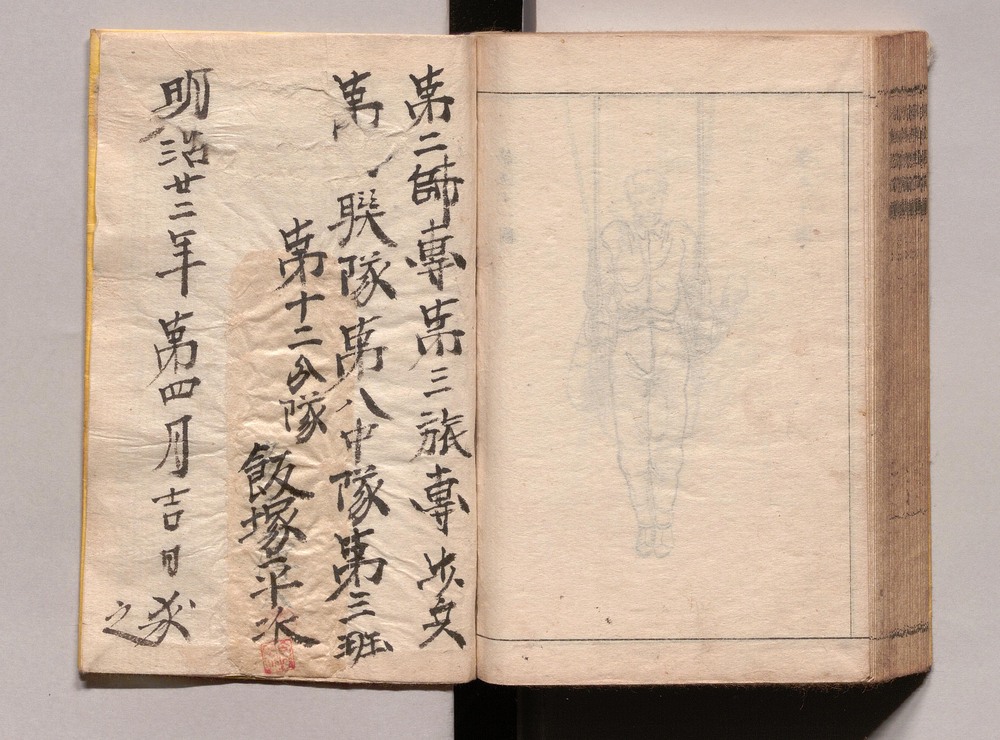 第二師專第三旅專歩兵
第 聯隊第八中隊第三班
第十二分隊
飯塚平次
明治廿二年第四月吉日求之